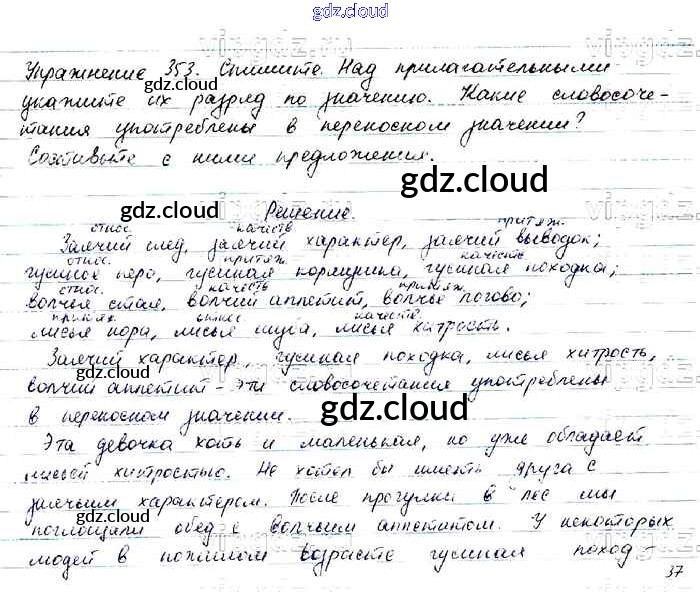 gdz.cloud
Упражнение 353. Спишите. Над прилагательными
укажите их разряд по значению. Какие словосоче-
тания употреблены в переносном значении?
Составьте с ними предложения.
gdz.cloud
gdz.cloud
Решение.
относ. качеств притяж.
Заячий след, заячий характер, заячий выводок;
относ. притяж. качеств
гусиное перо, гусиная кормушка, гусиная походка;
относ. качеств притяж.
волчья стая, волчий аппетит, волчье логово;
притяж. относ качеств.
лисья нора, лисья шуба, лисья хитрость.
Заячий характер, гусиная походка, лисья хитрость,
волчий аппетит - эти словосочетания употреблены
в переносном значении.
gdz.cloud
Эта девочка хоть и маленькая, но уже обладает
лисьей хитростью. Не хотел бы иметь друга с
заячьим характером. После прогулки в лес мы
gdz.cloud
поглощали обед с волчьим аппетитом. У некоторых
людей в пожилом возрасте гусиная поход-
37